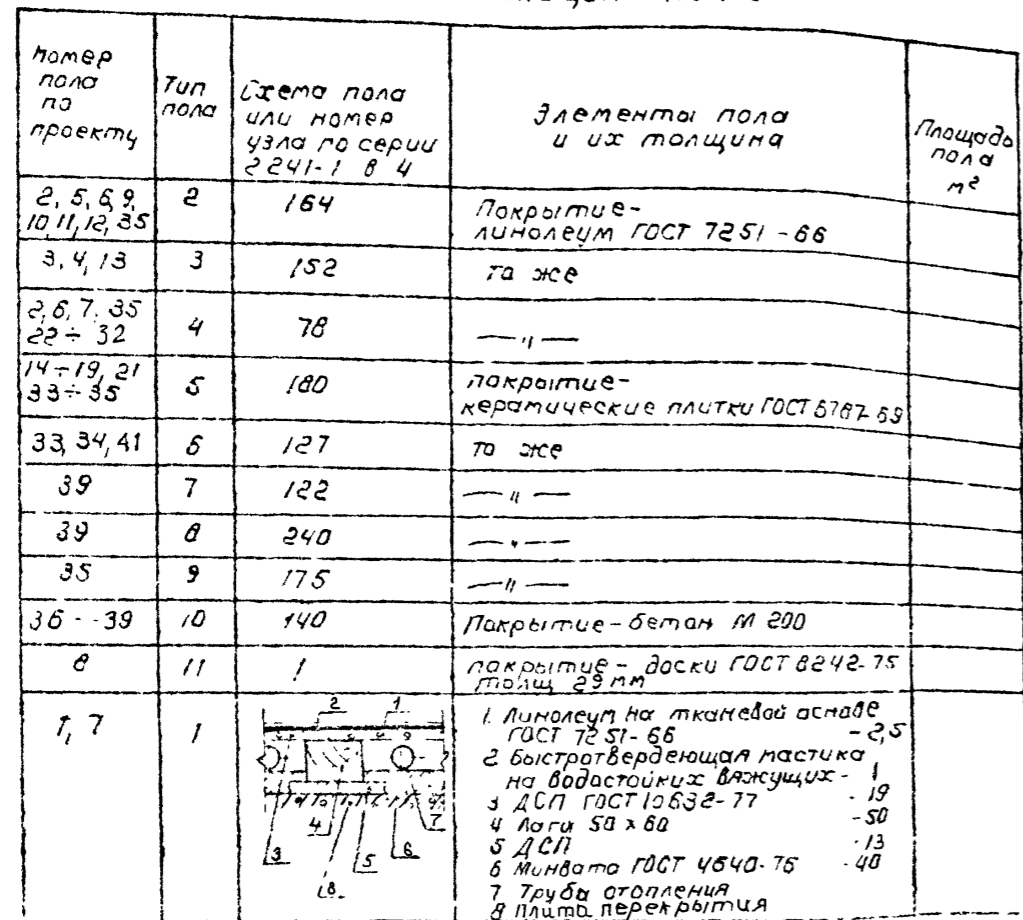 Номер
пола
по
проекту
Тип
пола
Схема пола
или номер
узла по серии
2 241-1 в 4
Элементы пола
и их толщина
Площадь
пола
м²
2, 5, 6, 9,
10, 11, 12, 35
2
164
Покрытие-
линолеум ГОСТ 7251-66
3, 4, 13
3
152
то же
2, 6, 7, 35
22 ÷ 32
4
78
— " —
14 ÷ 19, 21
33 ÷ 35
5
180
покрытие-
керамические плитки ГОСТ 6787-69
33, 34, 41
6
127
то же
39
7
122
— " —
39
8
240
— " —
35
9
175
— " —
36 - - 39
10
140
Покрытие - бетон М 200
8
11
1
покрытие - доски ГОСТ 8242-75
толщ 29 мм
1, 7
1
2 1
4 7
3 5 6
8
1. Линолеум на тканевой основе
ГОСТ 7251-66 - 2,5
2 Быстротвердеющая мастика
на водостойких вяжущих - 1
3 ДСП ГОСТ 10632-77 - 19
4 Лаги 50 x 60 - 50
5 ДСП - 13
6 Минвата ГОСТ 4640-76 - 40
7 Трубы отопления
8 Плита перекрытия